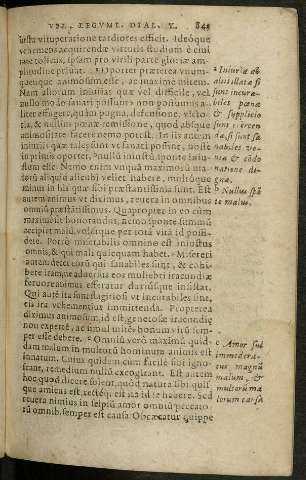 VEL LEGVMI. DIAL. V. 845
iusta vituperatione tardiores efficit. Ideoque
vehemens acquirendæ virtutis studium è ciui
tate tollens, ipsam pro virili parte gloriæ am-
plitudine priuat. oportet præterea vnum-
quenque animosum esse, ac maxime mitem.
Nam aliorum iniurias quæ vel difficile, vel
nullo modo sanari possunt non possumus a-
liter effugere, quàm pugna, defensione, victo-
ria, & nullius pœnæ remissione, quod absque
animositate facere nemo potest. In iis autem
iniuriis quæ tales sunt vt sanari possint, nosse
in primis oportet, nullū iniustū sponte iniu-
stum esse. Nemo enim vnquā maximorū ma
lorū aliquid alicubi vellet habere, multóque
minus in his quæ sibi præstantissima sunt. Est
autem animus vt diximus, reuera in omnibus
omniū præstantissimus. Quapropter in eo cùm
maximè honorandus, nemo sponte summū
accipiet malū, velletque per totā vitā id possi-
dere. Porrò miserabilis omnino est iniustus
omnis, & qui mali quicquam habet. Misereri
autem decet eorū qui sanabiles sunt, & cohi-
bere iram, ne aduersus eos muliebri iracūdiæ
feruore animus efferatur
Qui autē ita sunt flagitiosi vt incurabiles sint,
in eos ira vehementius immittenda. Propterea
diximus animosum, id est generosæ iracūdię
non expertē, ac simul mitē bonum virū sem-
per esse debere. Omniū verò maximū quid-
dam malum in multorū hominum animis est
innatum. Cui quidem cum facile sibi ignos-
cant, remedium nullū excogitant. Est autem
hoc quod dicere solent, quòd natura sibi quis
que amicus est, rectéq; est ita id se habere. Sed
reuera nimius in seipsū amor omniū peccato
rū omnib. semper est causa. Obcæcatur quippe
a Iniuriæ ab
aliis illatæ si
sunt incura-
biles pœna
& supplicio
sunt coercen
dæ, si sunt sa
nabiles ve-
nia & cōdo
natione di-
gnæ.
b Nullus spō
te malus.
c Amor sui
immodera-
tus magnū
malum, &
multorū ma
lorum causa